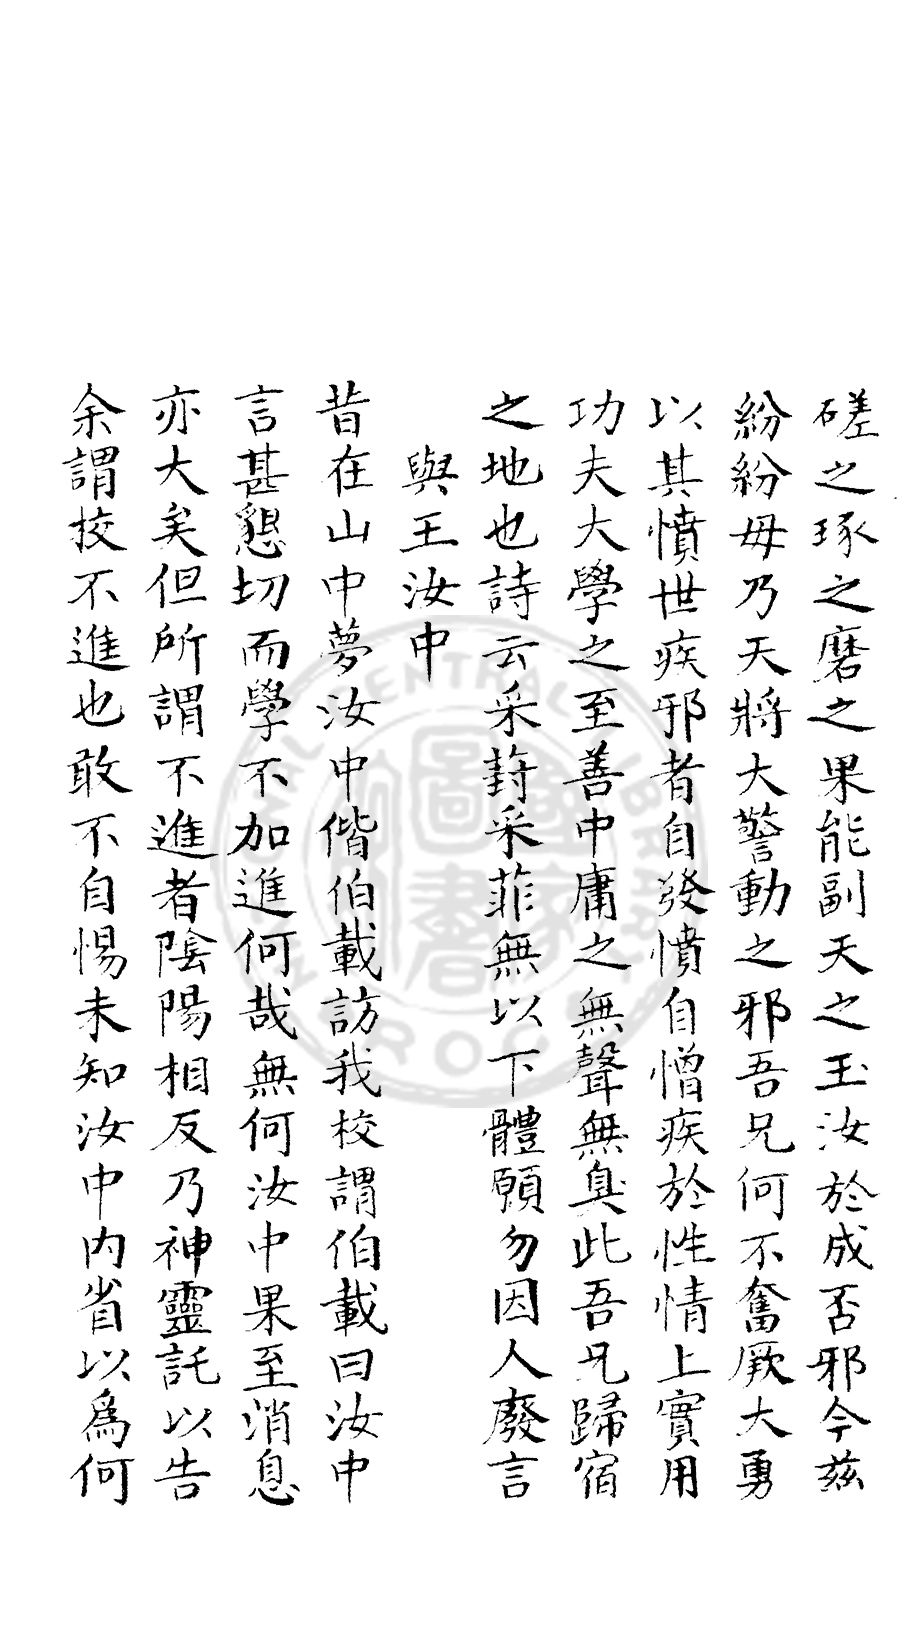 磋之琢之磨之果能副天之玉汝於成否邪今兹
紛紛毋乃天將大警動之邪吾兄何不奮厥大勇
以其憤世疾邪者自發憤自憎疾於性情上實用
功夫大學之至善中庸之無聲無臭此吾兄歸宿
之地也詩云采葑采菲無以下體願勿因人廢言
與王汝中
昔在山中夢汝中偕伯載訪我校謂伯載曰汝中
言甚懇切而學不加進何哉無何汝中果至消息
亦大矣但所謂不進者陰陽相反乃神靈託以告
余謂挍不進也敢不自惕未知汝中内省以爲何
NATIONAL CENTRAL LIBRARY
R.O.C.
國家圖書館